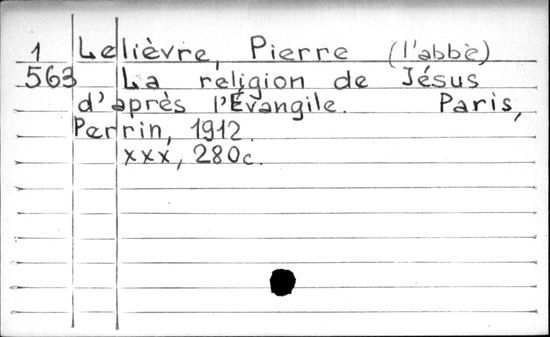 1 Lelièvre, Pierre (l'abbè)
563 La religion de Jésus
d'après l'Évangile. Paris,
Perrin, 1912.
xxx, 280c.